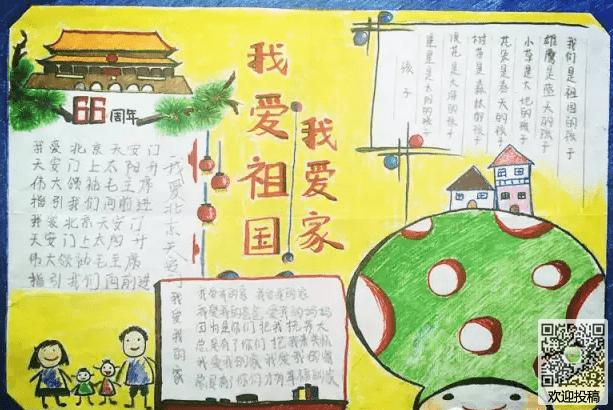 我爱祖国
我爱家
66周年
我爱北京天安门
天安门上太阳升
伟大领袖毛主席
指引我们向前进
我爱北京天安门
天安门上太阳升
伟大领袖毛主席
指引我们向前进
我爱北京天安门
我爱我的家
孩子
星星是太阳的孩子
浪花是大海的孩子
树芽是森林的孩子
花朵是春天的孩子
小草是大地的孩子
雄鹰是蓝天的孩子
我们是祖国的孩子
因为是你们把我抚养大
我爱我的家
欢迎投稿